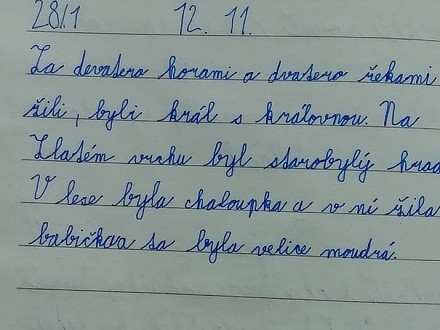 28/1 12. 11.
Za devatero horami a dvatero řekami
žili, byli král s královnou. Na
Zlatém vrchu byl starobylý hrad
V lese byla chaloupka a v ní žila
babičkaa sa byla velice moudrá.